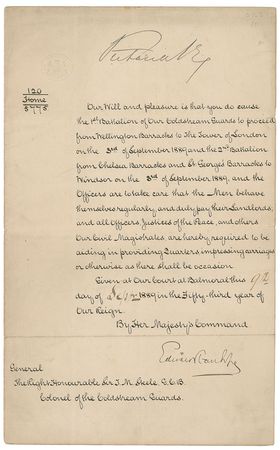 Victoria R
120
Home
5995
Our Will and pleasure is that you do cause
the 1st Battalion of Our Coldstream Guards to proceed
from Wellington Barracks to The Tower of London
on the 3rd of September 1889 and the 2nd Battalion
from Chelsea Barracks and St George's Barracks to
Windsor on the 3rd of September 1889, and the
Officers are to take care that the Men behave
themselves regularly, and duly pay their Landlords,
and all Officers, Justices of the Peace, and others
Our Civil Magistrates, are hereby required to be
aiding in providing Quarters impressing carriages
or otherwise as there shall be occasion
Given at Our Court at Balmoral this 9th
day of 1889 in the Fifty-third year of
Our Reign.
By Her Majesty's Command
Edward Stanhope
General
The Right Honourable Sir T. M. Steele G.C.B.
Colonel of the Coldstream Guards.